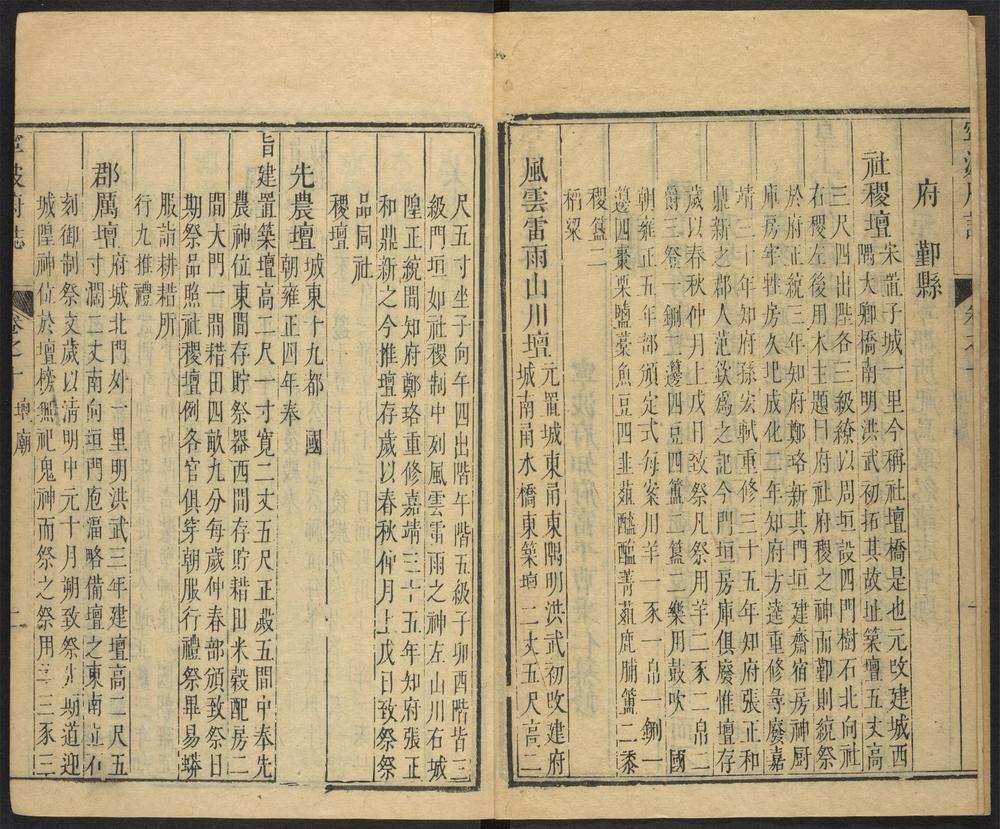 府 鄞縣
社稷壇
宋置子城一里今稱社壇橋是也元改建城西
隅大卿橋南明洪武初拓其故址築壇五丈高
三尺四出陛各三級繚以周垣設四門樹石北向社
右稷左後用木主題曰府社府稷之神而鄞則統祭
於府正統三年知府鄭珞新其門垣建齋宿房神厨
庫房宰牲房久圯成化二年知府方逵重修尋廢嘉
靖三十年知府孫宏軾重修三十五年知府張正和
鼎新之郡人范欽為之記今門垣房庫俱廢惟壇存
歲以春秋仲月上戊日致祭凡祭用羊二豕二帛二
爵三登一鉶二籩四豆四簠二簋二樂用鼓吹 國
朝雍正五年部頒定式每案用羊一豕一帛一鉶一
籩四棗栗鹽藁魚豆四韭菹醓醢菁菹鹿脯簠二黍
稷簋二
稻粱
風雲雷雨山川壇
元置城東甬東隅明洪武初改建府
城南甬水橋東築壇二丈五尺高二
尺五寸坐子向午四出階午階五級子卯酉階皆三
級門垣一如社稷制中列風雲雷雨之神左山川右城
隍正統間知府鄭珞重修嘉靖三十五年知府張正
和鼎新之今推壇存歲以春秋仲月上戊日致祭
品同社
稷壇
先農壇
城東十九都 國
朝雍正四年奉
旨建置築壇高二尺一寸寬二丈五尺正殿五間中奉先
農神位東間存貯祭器西間存貯耤田米穀配房二
間大門一間耤田四畝九分每歲仲春部頒致祭日
期祭品照社稷壇例各官俱穿朝服行禮祭畢易蟒
服詣耕耤所
行九推禮
郡厲壇
府城北門外一里明洪武三年建壇高二尺五
寸濶三丈南向垣門庖湢略備壇之東南立石
刻御制祭文歲以清明中元十月朔致祭先期道迎
城隍神位於壇榜無祀鬼神而祭之祭用羊三豕三
寧波府志
卷之十 壇廟
二